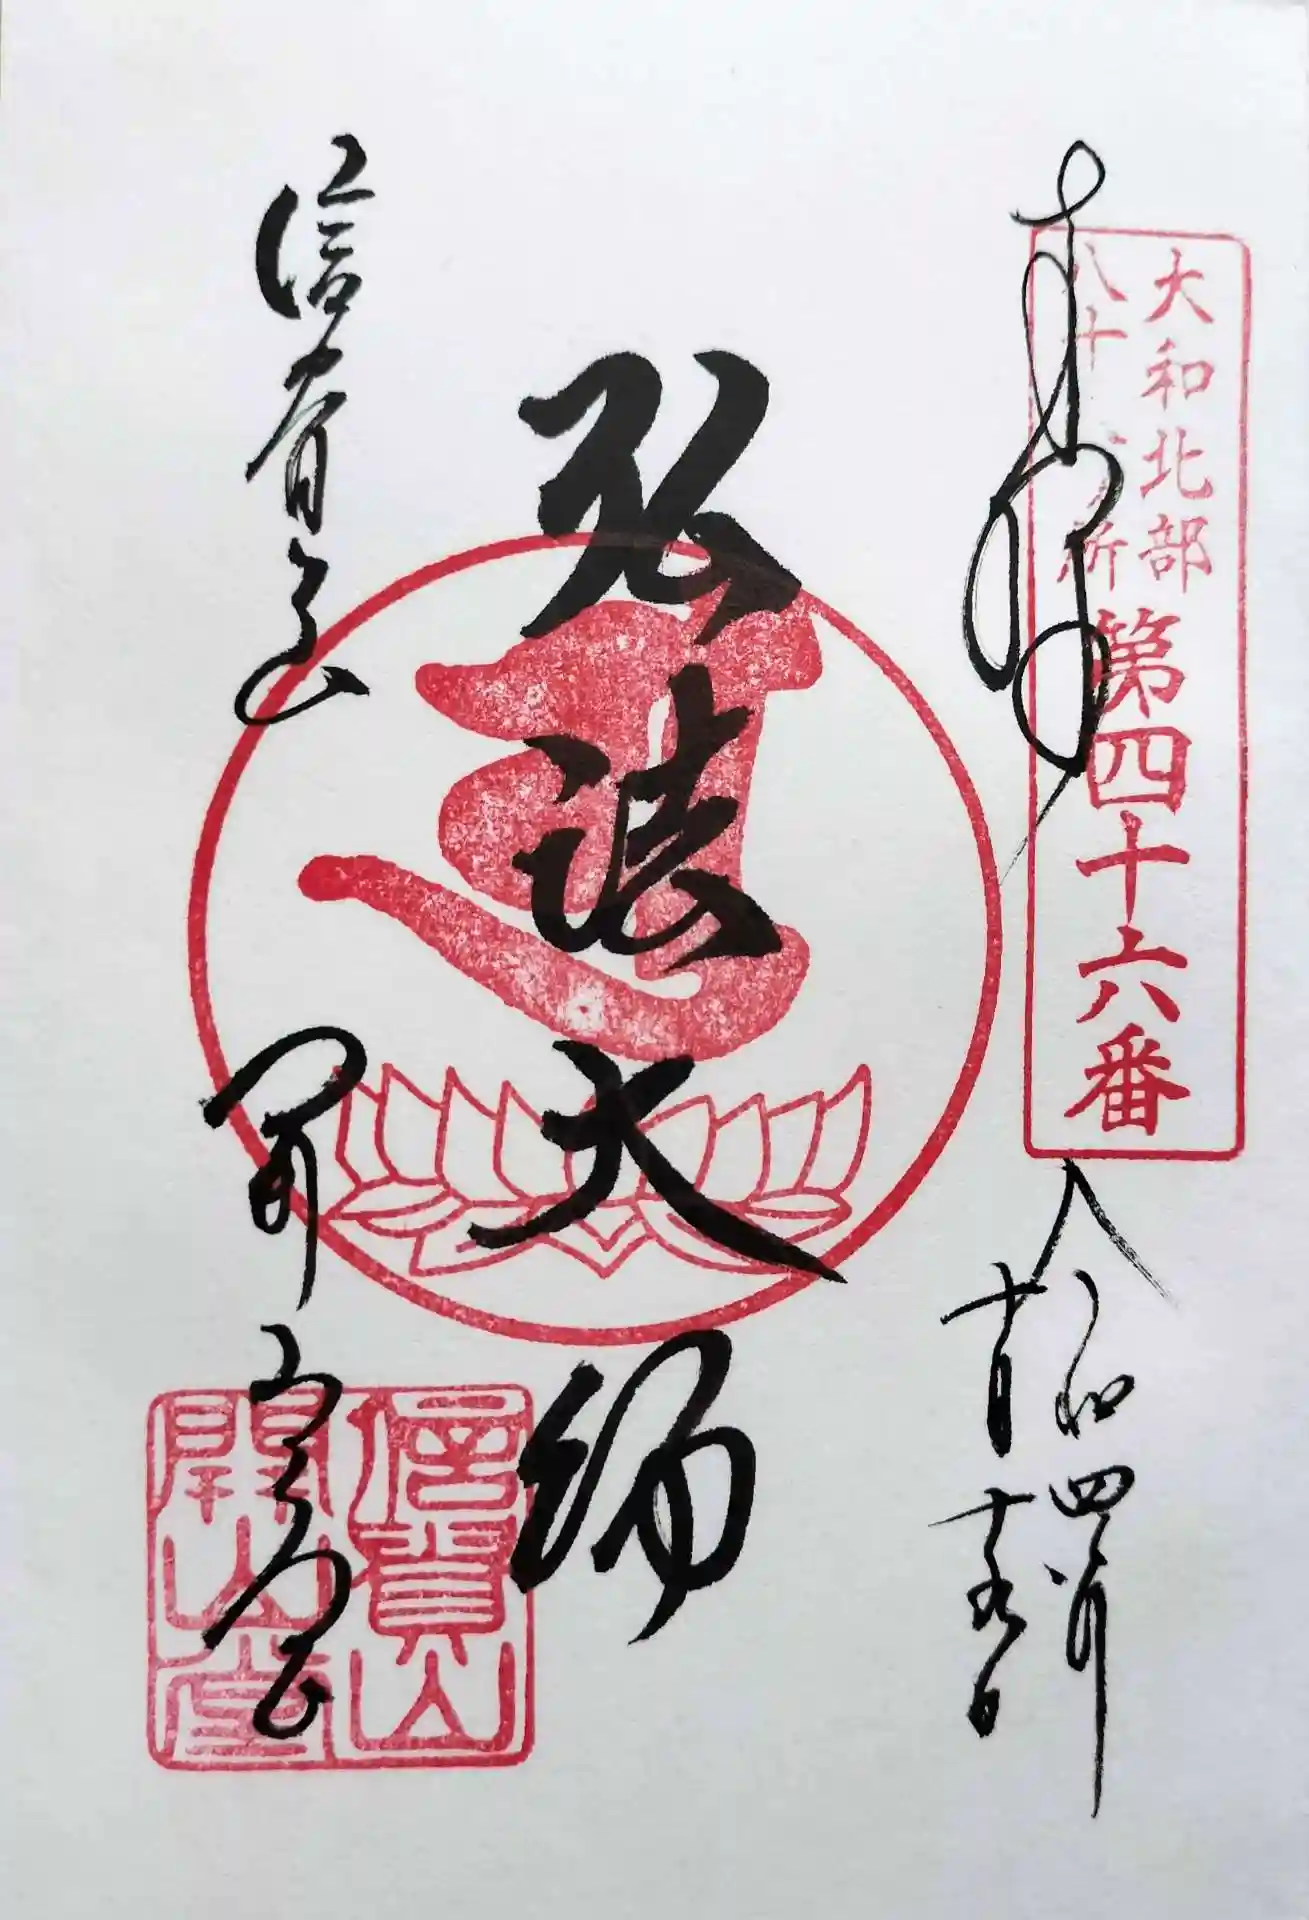 奉拝
大和北部
八十八ヶ所
第四十六番
令和四年
弘法大師
信貴山 開山堂
信貴山
開山堂